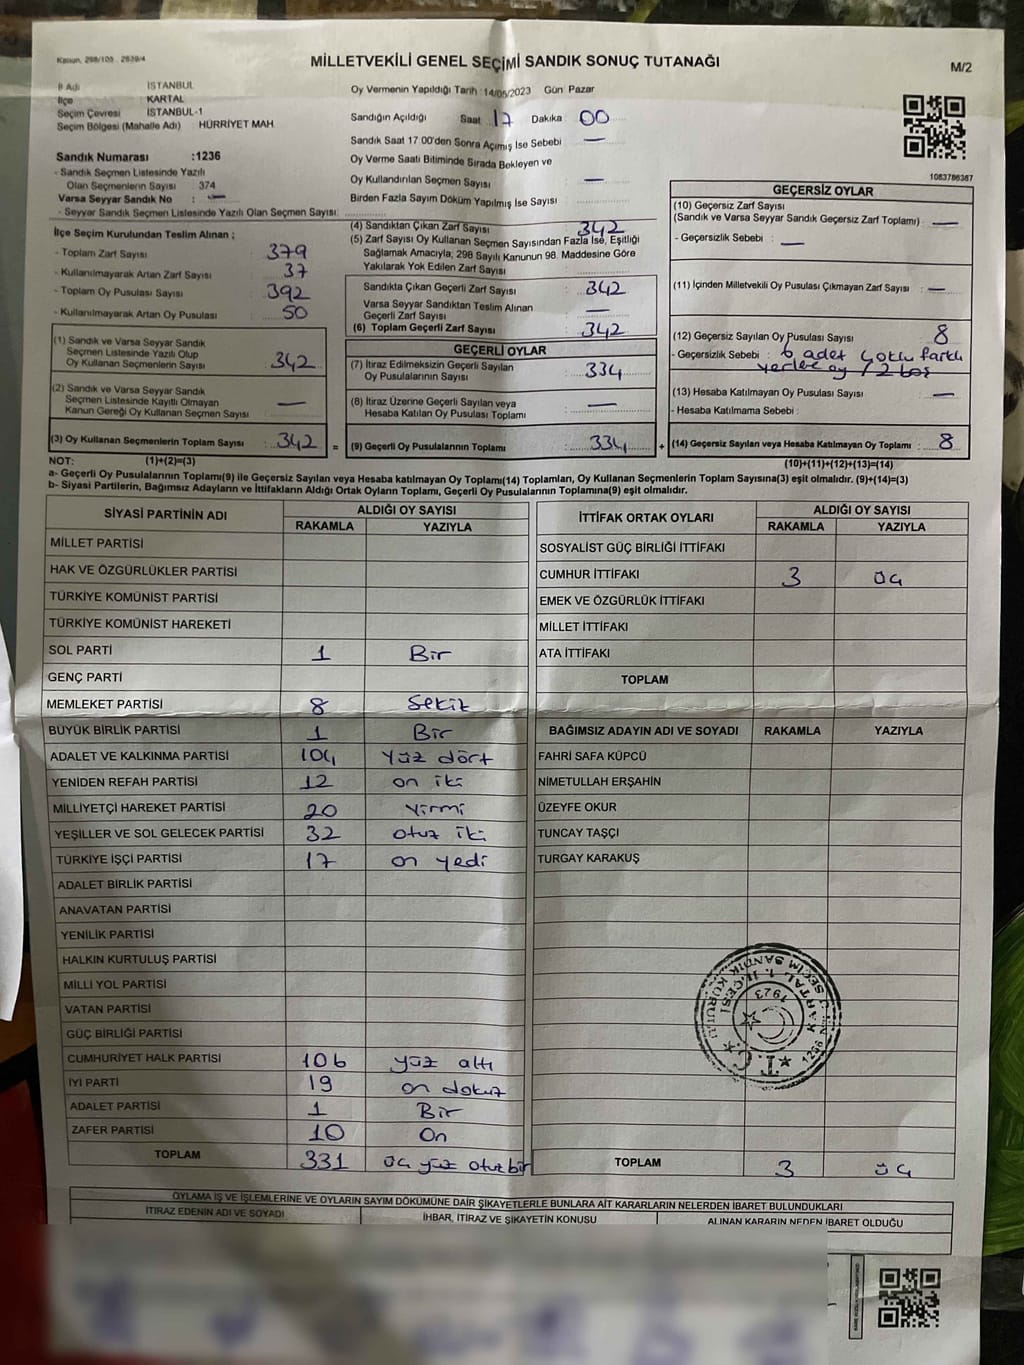 Kanun, 298/105 . 2839/4
MİLLETVEKİLİ GENEL SEÇİMİ SANDIK SONUÇ TUTANAĞI
M/2
İl Adı İSTANBUL
İlçe KARTAL
Seçim Çevresi İSTANBUL-1
Seçim Bölgesi (Mahalle Adı) HÜRRİYET MAH.
Sandık Numarası :1236
- Sandık Seçmen Listesinde Yazılı
Olan Seçmenlerin Sayısı 374
Varsa Seyyar Sandık No : —
- Seyyar Sandık Seçmen Listesinde Yazılı Olan Seçmen Sayısı:
Oy Vermenin Yapıldığı Tarih :14/05/2023 Gün Pazar
Sandığın Açıldığı Saat 17 Dakika 00
Sandık Saat 17.00'den Sonra Açılmış İse Sebebi —
Oy Verme Saati Bitiminde Sırada Bekleyen ve
Oy Kullandırılan Seçmen Sayısı : —
Birden Fazla Sayım Döküm Yapılmış İse Sayısı :
1063786367
İlçe Seçim Kurulundan Teslim Alınan ;
- Toplam Zarf Sayısı : 379
- Kullanılmayarak Artan Zarf Sayısı : 37
- Toplam Oy Pusulası Sayısı : 392
- Kullanılmayarak Artan Oy Pusulası : 50
(1) Sandık ve Varsa Seyyar Sandık
Seçmen Listesinde Yazılı Olup
Oy Kullanan Seçmenlerin Sayısı : 342
(2) Sandık ve Varsa Seyyar Sandık
Seçmen Listesinde Kayıtlı Olmayan
Kanun Gereği Oy Kullanan Seçmen Sayısı : —
(3) Oy Kullanan Seçmenlerin Toplam Sayısı : 342 =
(4) Sandıktan Çıkan Zarf Sayısı : 342
(5) Zarf Sayısı Oy Kullanan Seçmen Sayısından Fazla İse, Eşitliği
Sağlamak Amacıyla, 298 Sayılı Kanunun 98. Maddesine Göre
Yakılarak Yok Edilen Zarf Sayısı :
Sandıkta Çıkan Geçerli Zarf Sayısı : 342
Varsa Seyyar Sandıktan Teslim Alınan
Geçerli Zarf Sayısı : —
(6) Toplam Geçerli Zarf Sayısı : 342
GEÇERLİ OYLAR
(7) İtiraz Edilmeksizin Geçerli Sayılan
Oy Pusulalarının Sayısı : 334
(8) İtiraz Üzerine Geçerli Sayılan veya
Hesaba Katılan Oy Pusulası Toplamı : —
(9) Geçerli Oy Pusulalarının Toplamı : 334 +
GEÇERSİZ OYLAR
(10) Geçersiz Zarf Sayısı
(Sandık ve Varsa Seyyar Sandık Geçersiz Zarf Toplamı) : —
- Geçersizlik Sebebi : —
(11) İçinden Milletvekili Oy Pusulası Çıkmayan Zarf Sayısı : —
(12) Geçersiz Sayılan Oy Pusulası Sayısı : 8
- Geçersizlik Sebebi : 6 adet çoklu farklı
yerlere oy / 2 boş
(13) Hesaba Katılmayan Oy Pusulası Sayısı : —
- Hesaba Katılmama Sebebi :
(14) Geçersiz Sayılan veya Hesaba Katılmayan Oy Toplamı : 8
NOT: (1)+(2)=(3)
(10)+(11)+(12)+(13)=(14)
a- Geçerli Oy Pusulalarının Toplamı(9) ile Geçersiz Sayılan veya Hesaba katılmayan Oy Toplamı(14) Toplamları, Oy Kullanan Seçmenlerin Toplam Sayısına(3) eşit olmalıdır. (9)+(14)=(3)
b- Siyasi Partilerin, Bağımsız Adayların ve İttifakların Aldığı Ortak Oyların Toplamı, Geçerli Oy Pusulalarının Toplamına(9) eşit olmalıdır.
SİYASİ PARTİNİN ADI ALDIĞI OY SAYISI
RAKAMLA YAZIYLA
MİLLET PARTİSİ
HAK VE ÖZGÜRLÜKLER PARTİSİ
TÜRKİYE KOMÜNİST PARTİSİ
TÜRKİYE KOMÜNİST HAREKETİ
SOL PARTİ 1 Bir
GENÇ PARTİ
MEMLEKET PARTİSİ 8 Sekiz
BÜYÜK BİRLİK PARTİSİ 1 Bir
ADALET VE KALKINMA PARTİSİ 104 Yüz dört
YENİDEN REFAH PARTİSİ 12 on iki
MİLLİYETÇİ HAREKET PARTİSİ 20 Yirmi
YEŞİLLER VE SOL GELECEK PARTİSİ 32 otuz iki
TÜRKİYE İŞÇİ PARTİSİ 17 on yedi
ADALET BİRLİK PARTİSİ
ANAVATAN PARTİSİ
YENİLİK PARTİSİ
HALKIN KURTULUŞ PARTİSİ
MİLLİ YOL PARTİSİ
VATAN PARTİSİ
GÜÇ BİRLİĞİ PARTİSİ
CUMHURİYET HALK PARTİSİ 106 yüz altı
İYİ PARTİ 19 on dokuz
ADALET PARTİSİ 1 Bir
ZAFER PARTİSİ 10 On
TOPLAM 331 üç yüz otuz bir
İTTİFAK ORTAK OYLARI ALDIĞI OY SAYISI
RAKAMLA YAZIYLA
SOSYALİST GÜÇ BİRLİĞİ İTTİFAKI
CUMHUR İTTİFAKI 3 üç
EMEK VE ÖZGÜRLÜK İTTİFAKI
MİLLET İTTİFAKI
ATA İTTİFAKI
TOPLAM
BAĞIMSIZ ADAYIN ADI VE SOYADI RAKAMLA YAZIYLA
FAHRİ SAFA KÜPCÜ
NİMETULLAH ERŞAHİN
ÜZEYFE OKUR
TUNCAY TAŞÇI
TURGAY KARAKUŞ
T.C.
KARTAL 1. İLÇESİ
1236
SEÇİM SANDIK KURULU
1923
TOPLAM 3 üç
OYLAMA İŞ VE İŞLEMLERİNE VE OYLARIN SAYIM DÖKÜMÜNE DAİR ŞİKAYETLERLE BUNLARA AİT KARARLARIN NELERDEN İBARET BULUNDUKLARI
İTİRAZ EDENİN ADI VE SOYADI İHBAR, İTİRAZ VE ŞİKAYETİN KONUSU ALINAN KARARIN NEDEN İBARET OLDUĞU